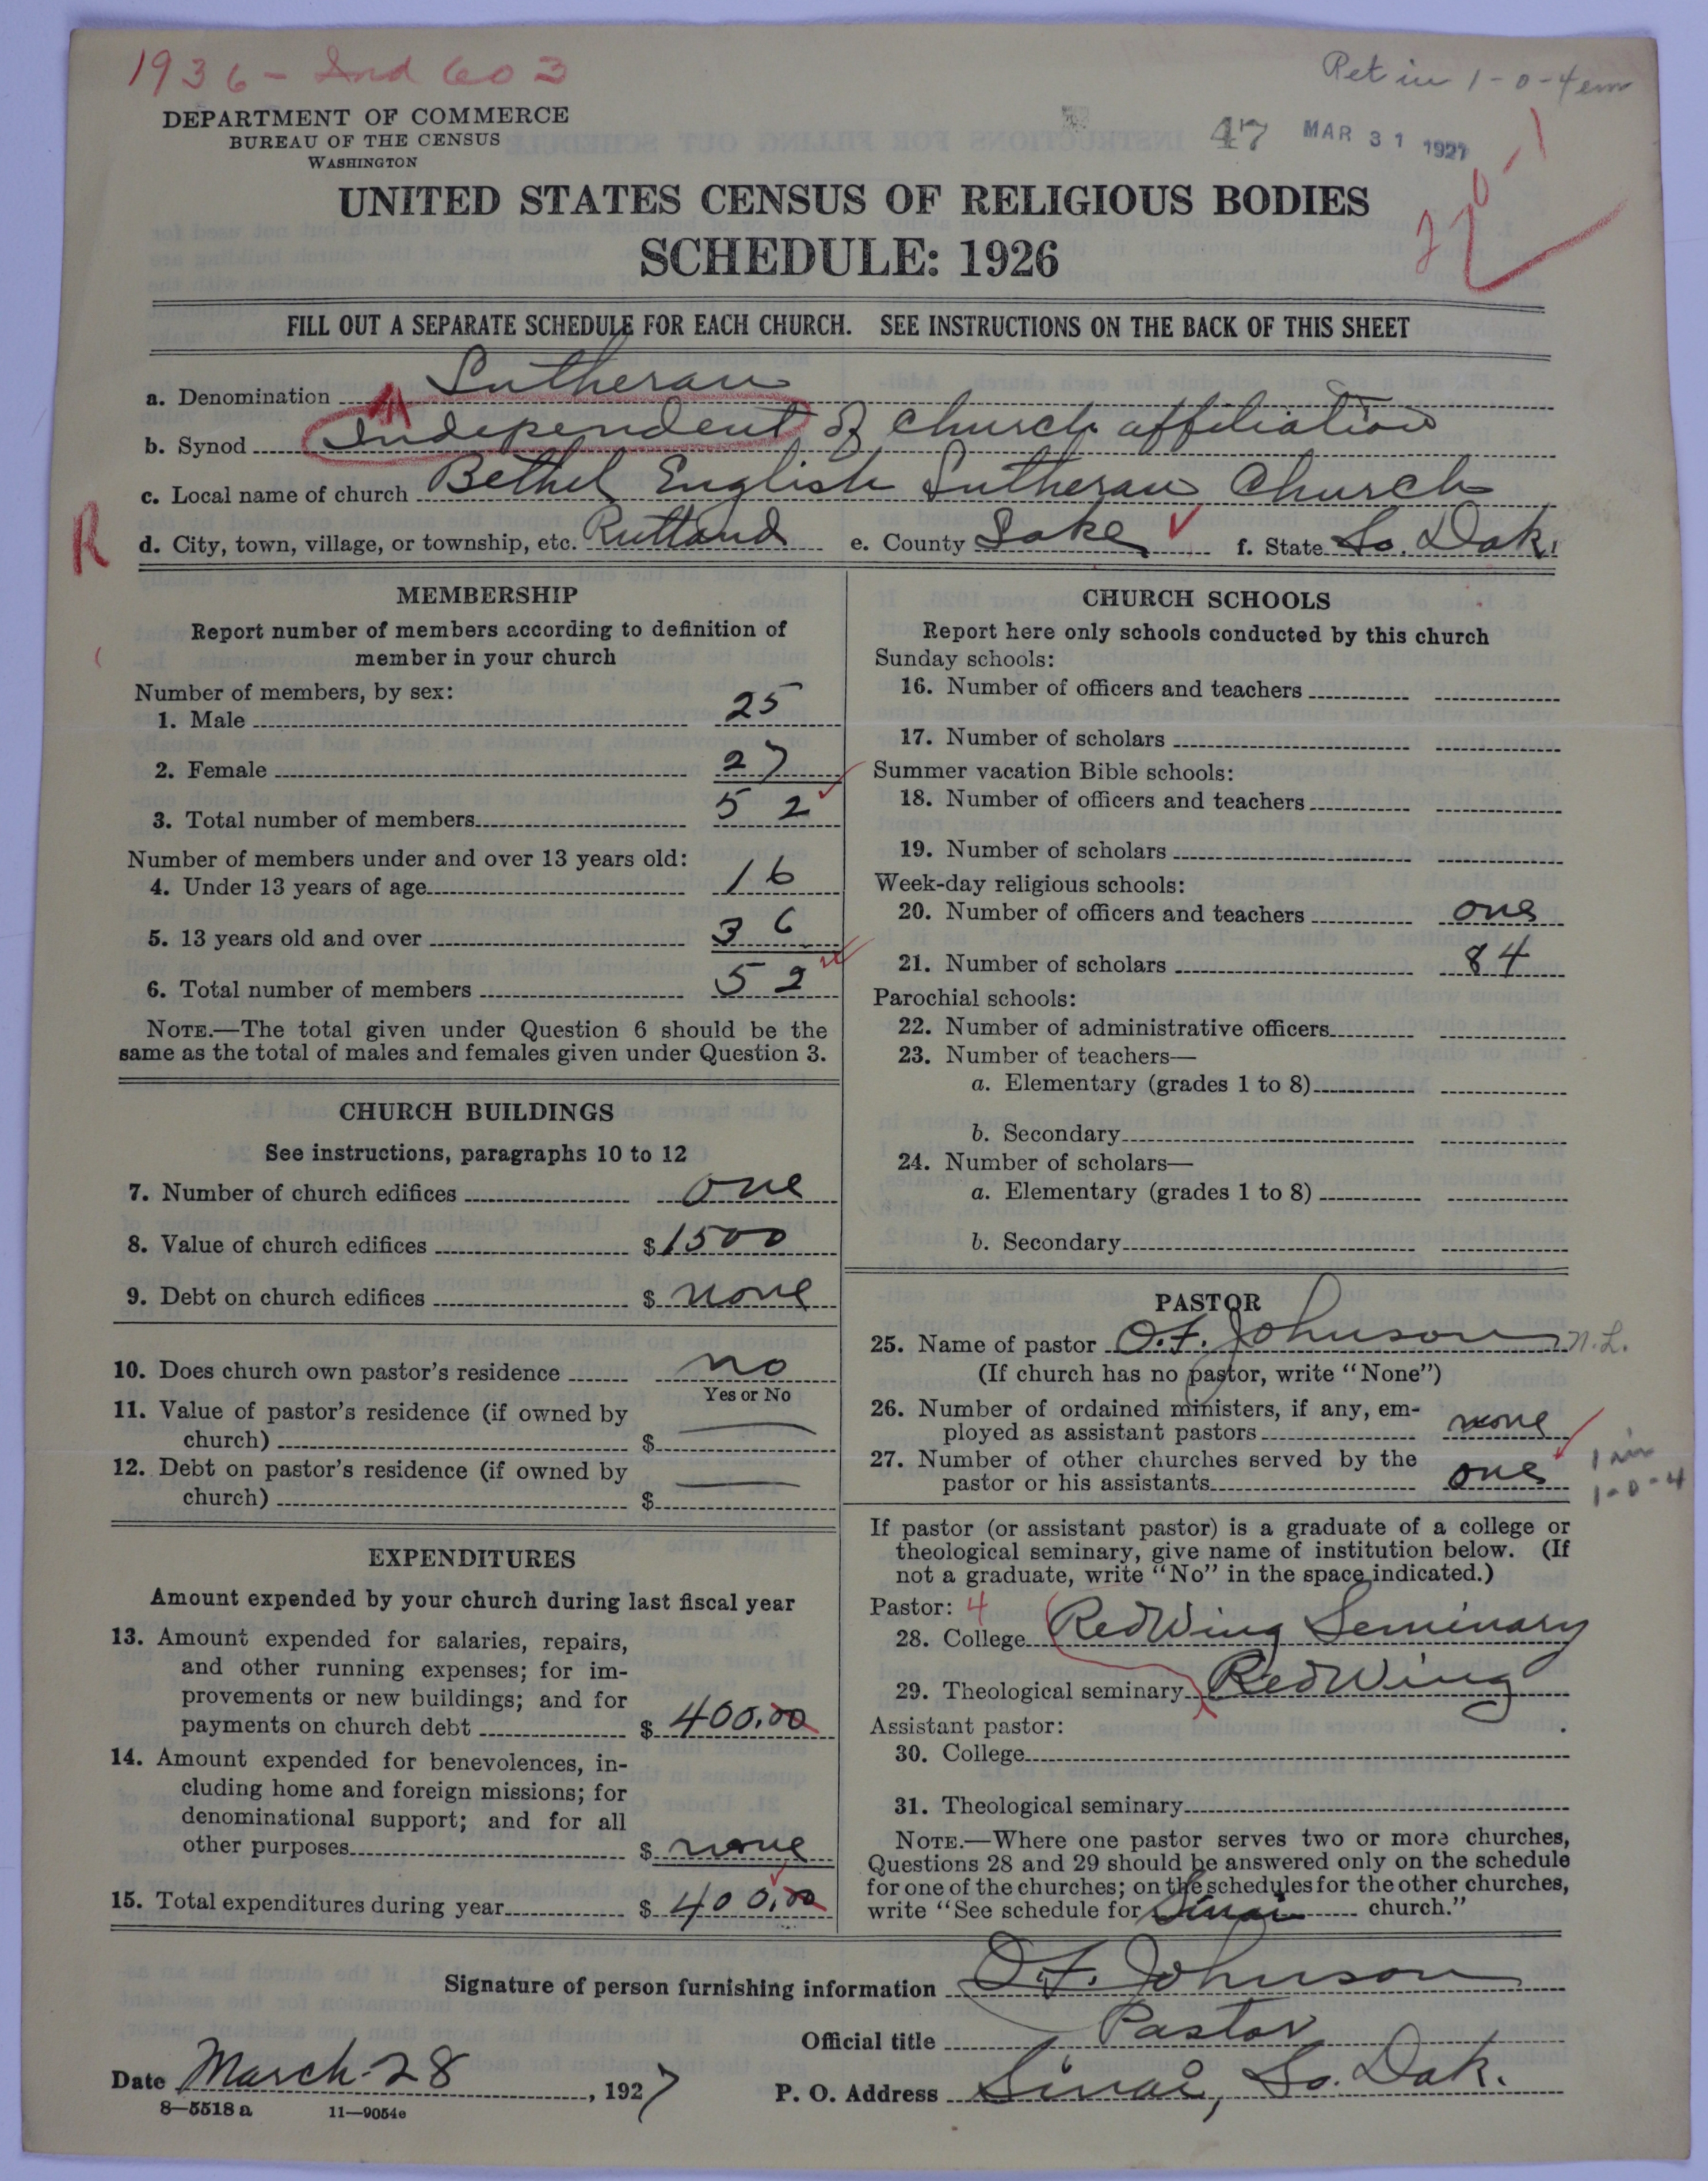 1936 - Ind 603
Ret in 1-0-4 em
DEPARTMENT OF COMMERCE
BUREAU OF THE CENSUS
WASHINGTON
47 MAR 31 1927
UNITED STATES CENSUS OF RELIGIOUS BODIES
SCHEDULE: 1926
FILL OUT A SEPARATE SCHEDULE FOR EACH CHURCH. SEE INSTRUCTIONS ON THE BACK OF THIS SHEET
a. Denomination Lutheran
b. Synod Independent of church affiliation
c. Local name of church Bethel English Lutheran Church
R
d. City, town, village, or township, etc. Rutland e. County Lake f. State So. Dak.
MEMBERSHIP
Report number of members according to definition of
member in your church
Number of members, by sex:
1. Male 25
2. Female 27
3. Total number of members 52
Number of members under and over 13 years old:
4. Under 13 years of age 16
5. 13 years old and over 36
6. Total number of members 52
NOTE.—The total given under Question 6 should be the
same as the total of males and females given under Question 3.
CHURCH BUILDINGS
See instructions, paragraphs 10 to 12
7. Number of church edifices one
8. Value of church edifices $ 1500
9. Debt on church edifices $ none
10. Does church own pastor's residence no
Yes or No
11. Value of pastor's residence (if owned by
church) $ —
12. Debt on pastor's residence (if owned by
church) $ —
EXPENDITURES
Amount expended by your church during last fiscal year
13. Amount expended for salaries, repairs,
and other running expenses; for im-
provements or new buildings; and for
payments on church debt $ 400.00
14. Amount expended for benevolences, in-
cluding home and foreign missions; for
denominational support; and for all
other purposes $ none
15. Total expenditures during year $ 400.00
CHURCH SCHOOLS
Report here only schools conducted by this church
Sunday schools:
16. Number of officers and teachers
17. Number of scholars
Summer vacation Bible schools:
18. Number of officers and teachers
19. Number of scholars
Week-day religious schools:
20. Number of officers and teachers one
21. Number of scholars 84
Parochial schools:
22. Number of administrative officers
23. Number of teachers—
a. Elementary (grades 1 to 8)
b. Secondary
24. Number of scholars—
a. Elementary (grades 1 to 8)
b. Secondary
PASTOR
25. Name of pastor O.F. Johnson N.L.
(If church has no pastor, write "None")
26. Number of ordained ministers, if any, em-
ployed as assistant pastors none
27. Number of other churches served by the
pastor or his assistants one
1 in
1-0-4
If pastor (or assistant pastor) is a graduate of a college or
theological seminary, give name of institution below. (If
not a graduate, write "No" in the space indicated.)
Pastor: 4
28. College Red Wing Seminary
29. Theological seminary Red Wing
Assistant pastor:
30. College
31. Theological seminary
NOTE.—Where one pastor serves two or more churches,
Questions 28 and 29 should be answered only on the schedule
for one of the churches; on the schedules for the other churches,
write "See schedule for Sinai church."
Signature of person furnishing information O.F. Johnson
Official title Pastor
Date March 28, 1927 P. O. Address Sinai, So. Dak.
8—5518 a 11—9054e